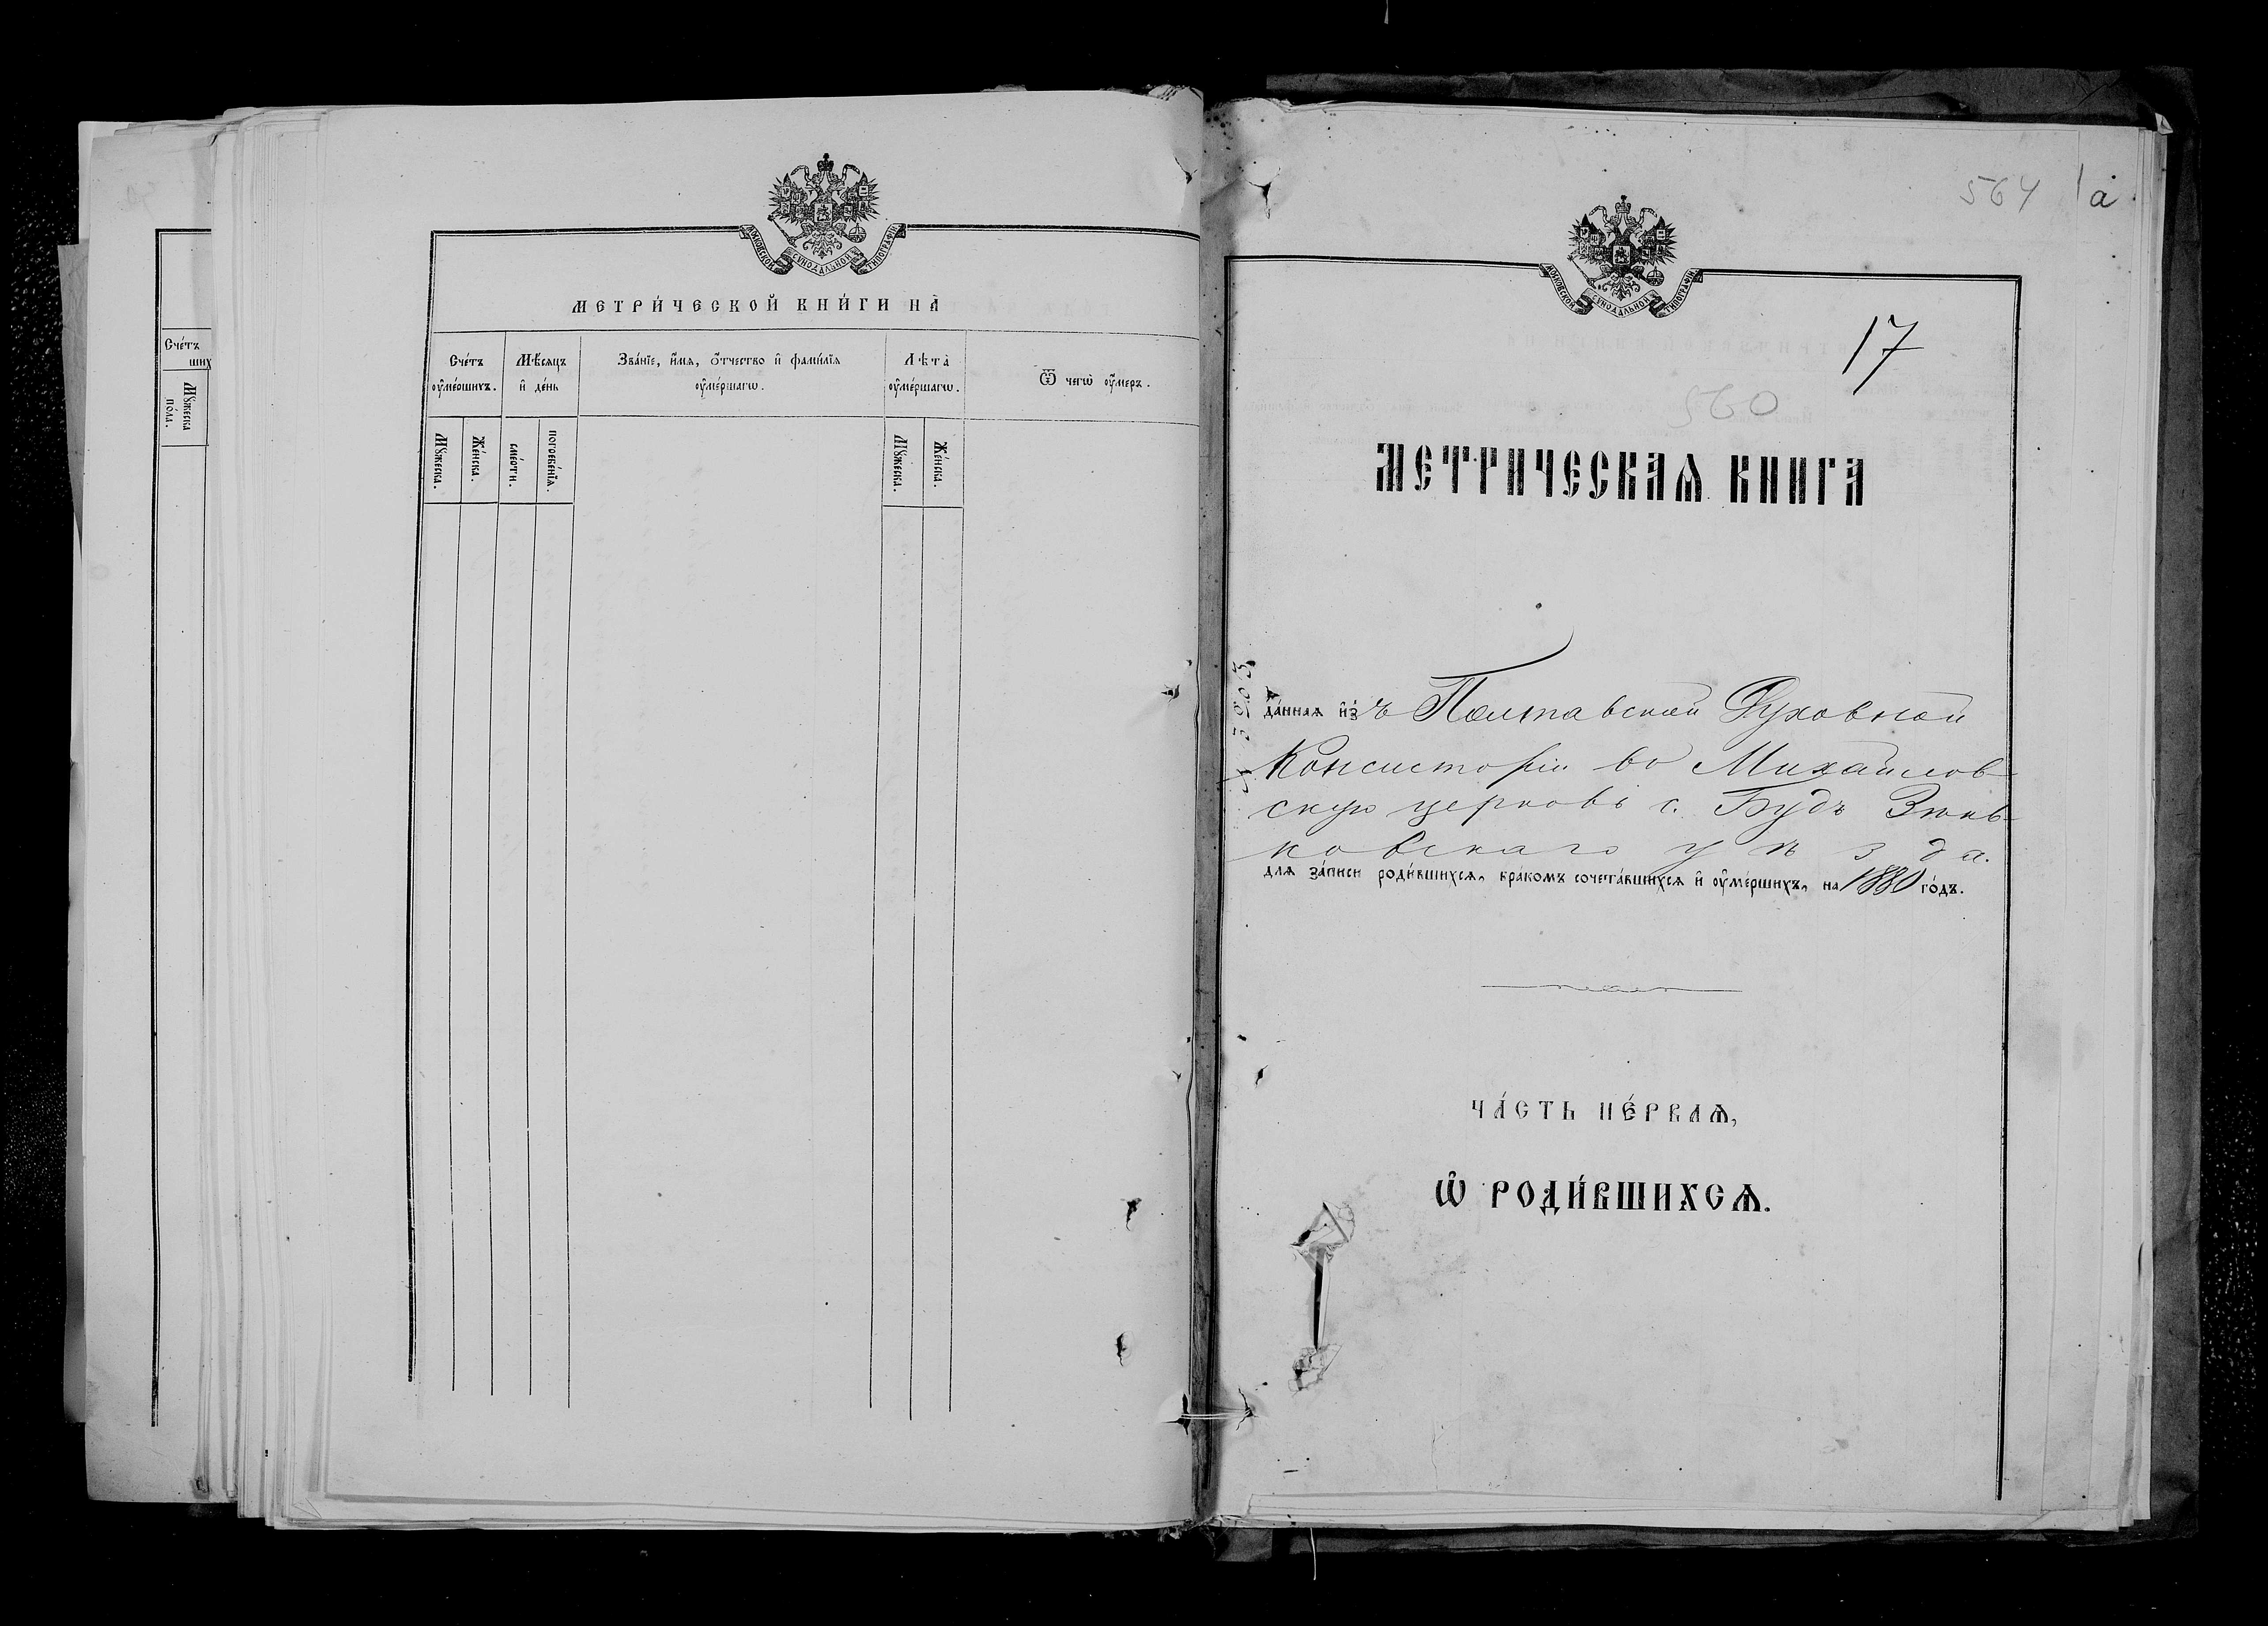 Счетъ
ших
Мꙋжеска
по́ла.
МОСКОВСКОЙ СѴНОДАЛЬНОЙ ТИПОГРАФІИ
МЕТРИ́ЧЕСКОЙ КНИ́ГИ НА̀
Сче́тъ
ᲂу҆ме́ршихъ.
Мѣ́сяцъ
и҆ де́нь
Зва́нїе, и҆́мя, ѻ҆́тчество и҆ фами́лїя
ᲂу҆ме́ршагѡ.
Лѣта̀
ᲂу҆ме́ршагѡ.
Ѿ чегѡ̀ ᲂу҆́меръ.
Мꙋ́жеска.
Же́нска.
сме́рти.
погребе́нїя.
Мꙋ́жеска.
Же́нска.
564 а
МОСКОВСКОЙ СѴНОДАЛЬНОЙ ТИПОГРАФІИ
17
560
МЕТРИЧЕСКАѦ КНИГА
да́нная и҆зъ Полтавской Духовной
Консисторіи во Михайлов-
скую церковь с. Будъ Зѣнь-
ковскаго уѣзда.
для за́писи роди́вшихся, бра́комъ сочета́вшихся и҆ ᲂу҆ме́ршихъ, на 1880 го́дъ.
ЧА́СТЬ ПЕ́РВАѦ,
Ѡ҆ РОДИ́ВШИХСѦ.